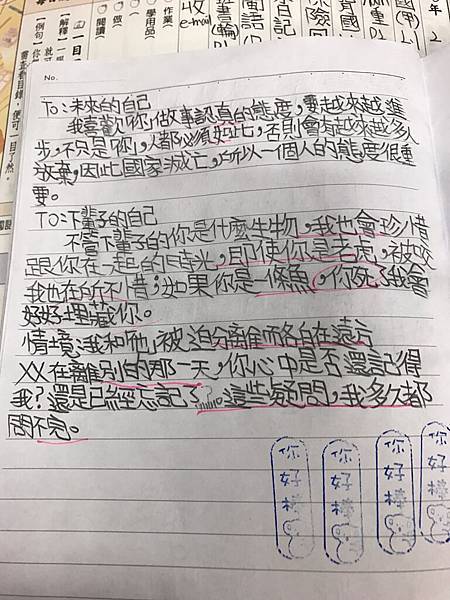 作業(
學用品(
做(
閱讀(
收
e-mail
No.
To:未來的自己
我喜歡你做事認真的態度,要越來越進
步,不只是你,人都必須如此,否則會有越來越多人
放棄,因此國家滅亡,所以一個人的態度很重
要。
To:下輩子的自己
不管下輩子的你是什麼生物,我也會珍惜
跟你在一起的時光,即使你是老虎,被咬
我也在所不惜;如果你是一條魚,你死了我會
好好埋藏你。
情境:我和他被迫分離而各自在遠方
XX在離別的那一天,你心中是否還記得
我?還是已經忘記了……?這些疑問,我多久都
問不完。
你好棒
你好棒
你好棒
你好棒